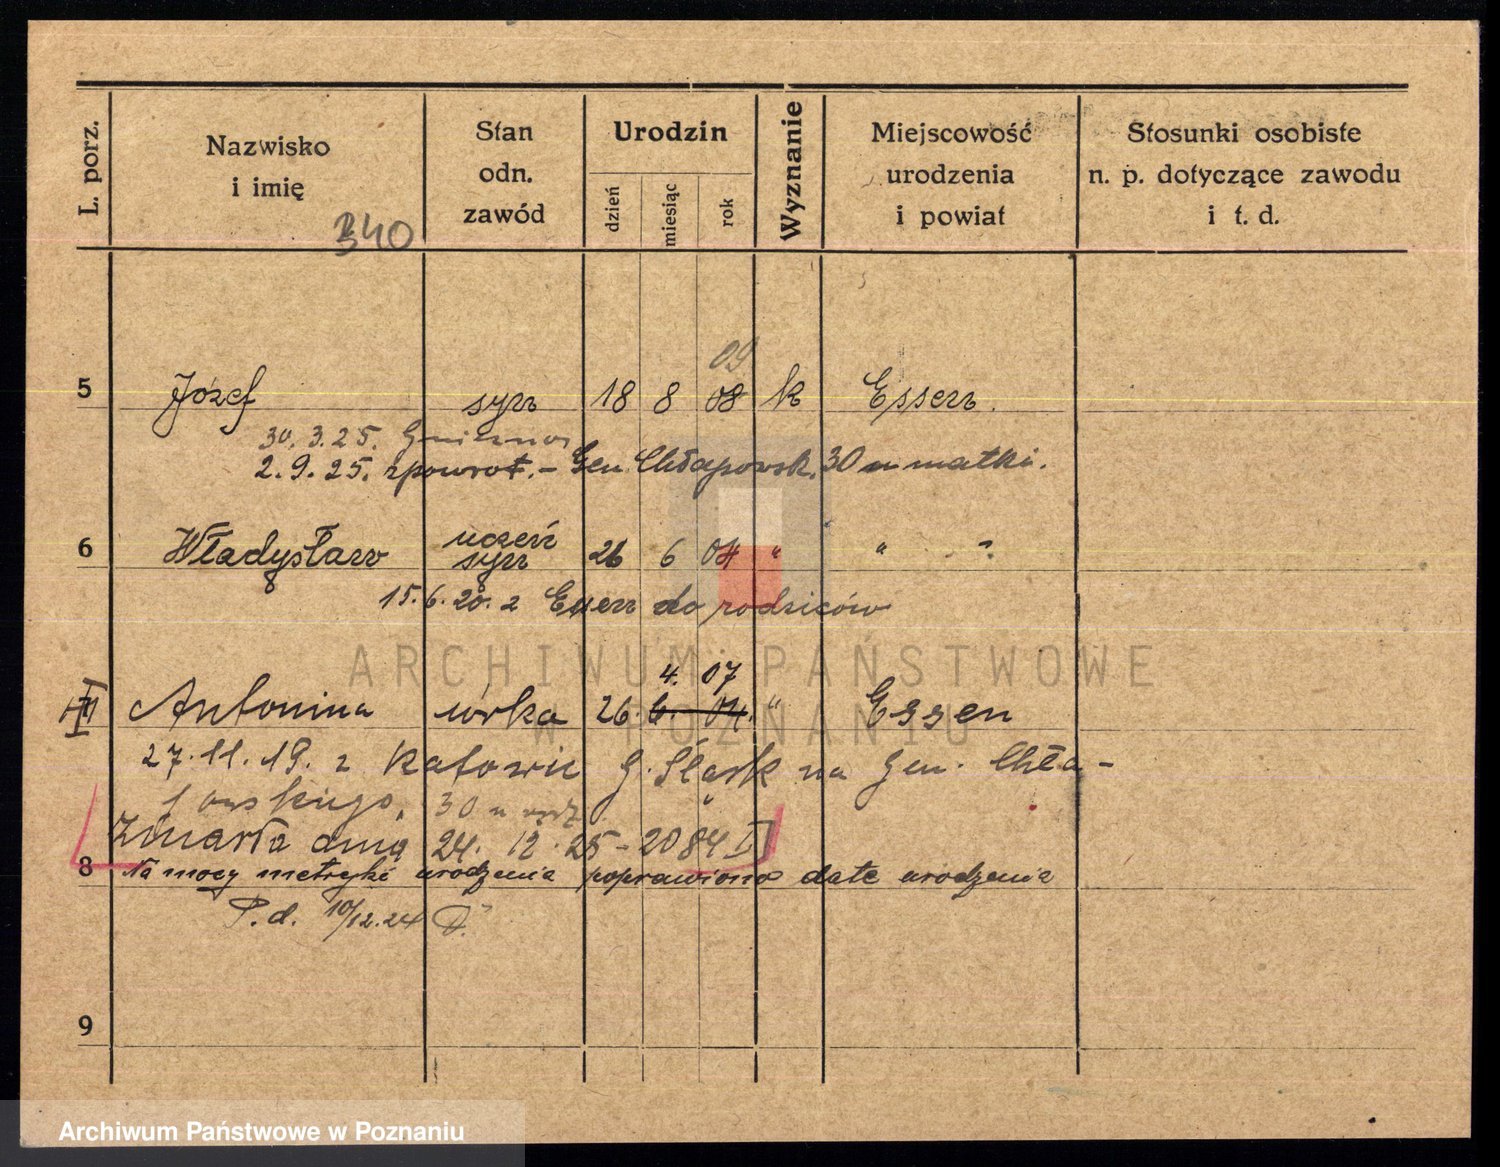 L. porz.
Nazwisko i imię
Stan odn. zawód
Urodzin
dzień miesiąc rok
Wyznanie
Miejscowość urodzenia i powiat
Stosunki osobiste n. p. dotyczące zawodu i t. d.
340
09
5 Józef syn 18 8 08 k Essen.
30. 3. 25. Gniezno
2. 9. 25. zpowrot. - Gen. Chłapowsk. 30 u matki.
6 Władysław uczeń syn 26 6 04 " " "
15. 6. 20. z Essen do rodziców
4. 07
Antonina córka 26. 6. 04. " Essen
27. 11. 19. z Katowic G. Śląsk na Gen. Chła-
powskiego, 30 u
Zmarła dnia 24. 12. 25 - 2084 II
8 Na mocy metryki urodzenia poprawiono datę urodzenia
P. d. 10/12. 24
9
ARCHIWUM PAŃSTWOWE
W POZNANIU
Archiwum Państwowe w Poznaniu